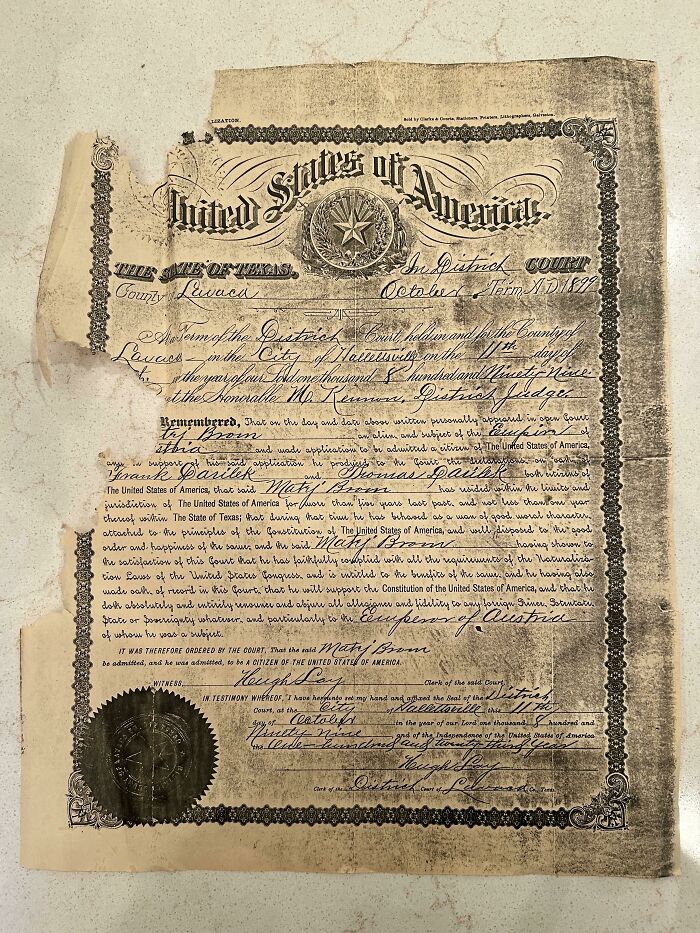 LIZATION. Sold by Clarke & Courts, Stationers, Printers, Lithographers, Galveston.
United States of America.
THE STATE OF TEXAS, In District COURT
County Lavaca October Term, A.D. 1899
At a Term of the District Court, held in and for the County of
Lavaca in the City of Hallettsville on the 11th day of
the year of our Lord one thousand 8 hundred and Ninety Nine
the Honorable M. Kennon, District Judge.
Remembered, That on the day and date above written personally appeared in open Court
Brom an alien, and subject of the of
and made application to be admitted a citizen of The United States of America,
and in support of his said application he produced to the Court the declarations on oath of
Frank and Thomas both citizens of
The United States of America, that said Matj Brom has resided within the limits and
jurisdiction of The United States of America for more than five years last past, and not less than one year
thereof within The State of Texas; that during that time he has behaved as a man of good moral character,
attached to the principles of the Constitution of The United States of America, and well disposed to the good
order and happiness of the same; and the said Matj Brom having shown to
the satisfaction of this Court that he has faithfully complied with all the requirements of the Naturaliza-
tion Laws of the United States Congress, and is entitled to the benefits of the same, and he having also
made oath, of record in this Court, that he will support the Constitution of the United States of America, and that he
doth absolutely and entirely renounce and abjure all allegiance and fidelity to any foreign Prince, Potentate,
State or Sovereignty whatever, and particularly to the Emperor of Austria
of whom he was a subject.
IT WAS THEREFORE ORDERED BY THE COURT, That the said Matj Brom
be admitted, and he was admitted, to be A CITIZEN OF THE UNITED STATES OF AMERICA.
WITNESS, Hugh Lay Clerk of the said Court.
IN TESTIMONY WHEREOF, I have hereunto set my hand and affixed the Seal of the District
Court, at the City of Hallettsville this 11th
day of October in the year of our Lord one thousand 8 hundred and
Ninety Nine and of the Independence of the United States of America
the One hundred and twenty third Year
Hugh Lay
Clerk of the District Court of Lavaca Co. Texas.